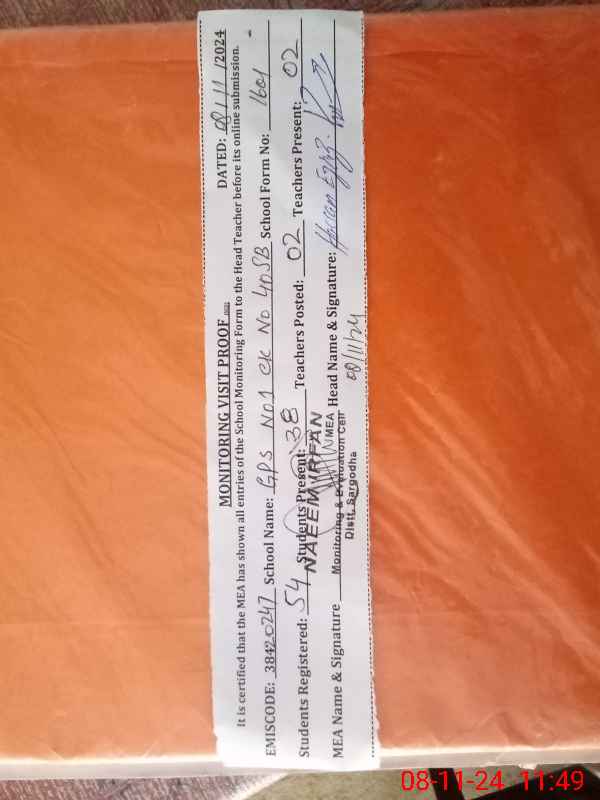 MONITORING VISIT PROOF
DATED: 08/11/2024
It is certified that the MEA has shown all entries of the School Monitoring Form to the Head Teacher before its online submission.
EMISCODE: 38420247 School Name: GPS No 1 CK No 40SB School Form No: 1601
Students Registered: 54 Students Present: 38 Teachers Posted: 02 Teachers Present: 02
NAEEM IRFAN
MEA Name & Signature MEA Head Name & Signature:
Monitoring & Evaluation Cell
Distt. Sargodha
08/11/24
08-11-24 11:49